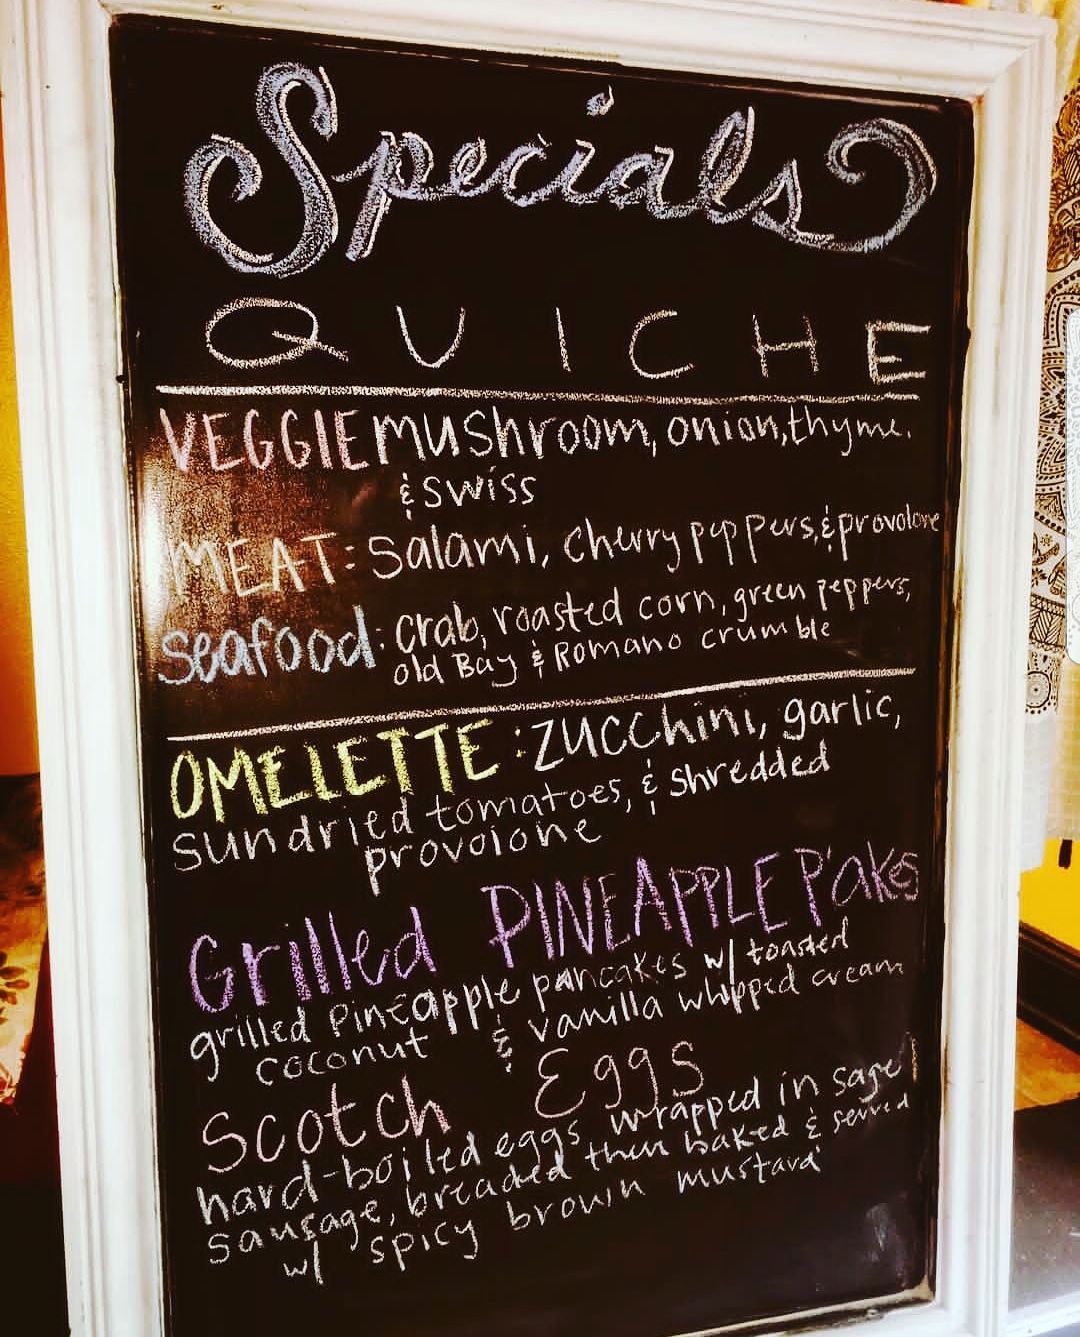 Specials
QUICHE
VEGGIE mushroom, onion, thyme,
& swiss
MEAT: Salami, cherry peppers, & provolone
Seafood: crab, roasted corn, green peppers,
old Bay & Romano crumble
OMELETTE: zucchini, garlic,
sundried tomatoes, & shredded
provolone
Grilled PINEAPPLE P'akes
grilled pineapple pancakes w/ toasted
coconut & vanilla whipped cream
Scotch Eggs
hard-boiled eggs wrapped in sage
sausage, breaded then baked & served
w/ spicy brown mustard